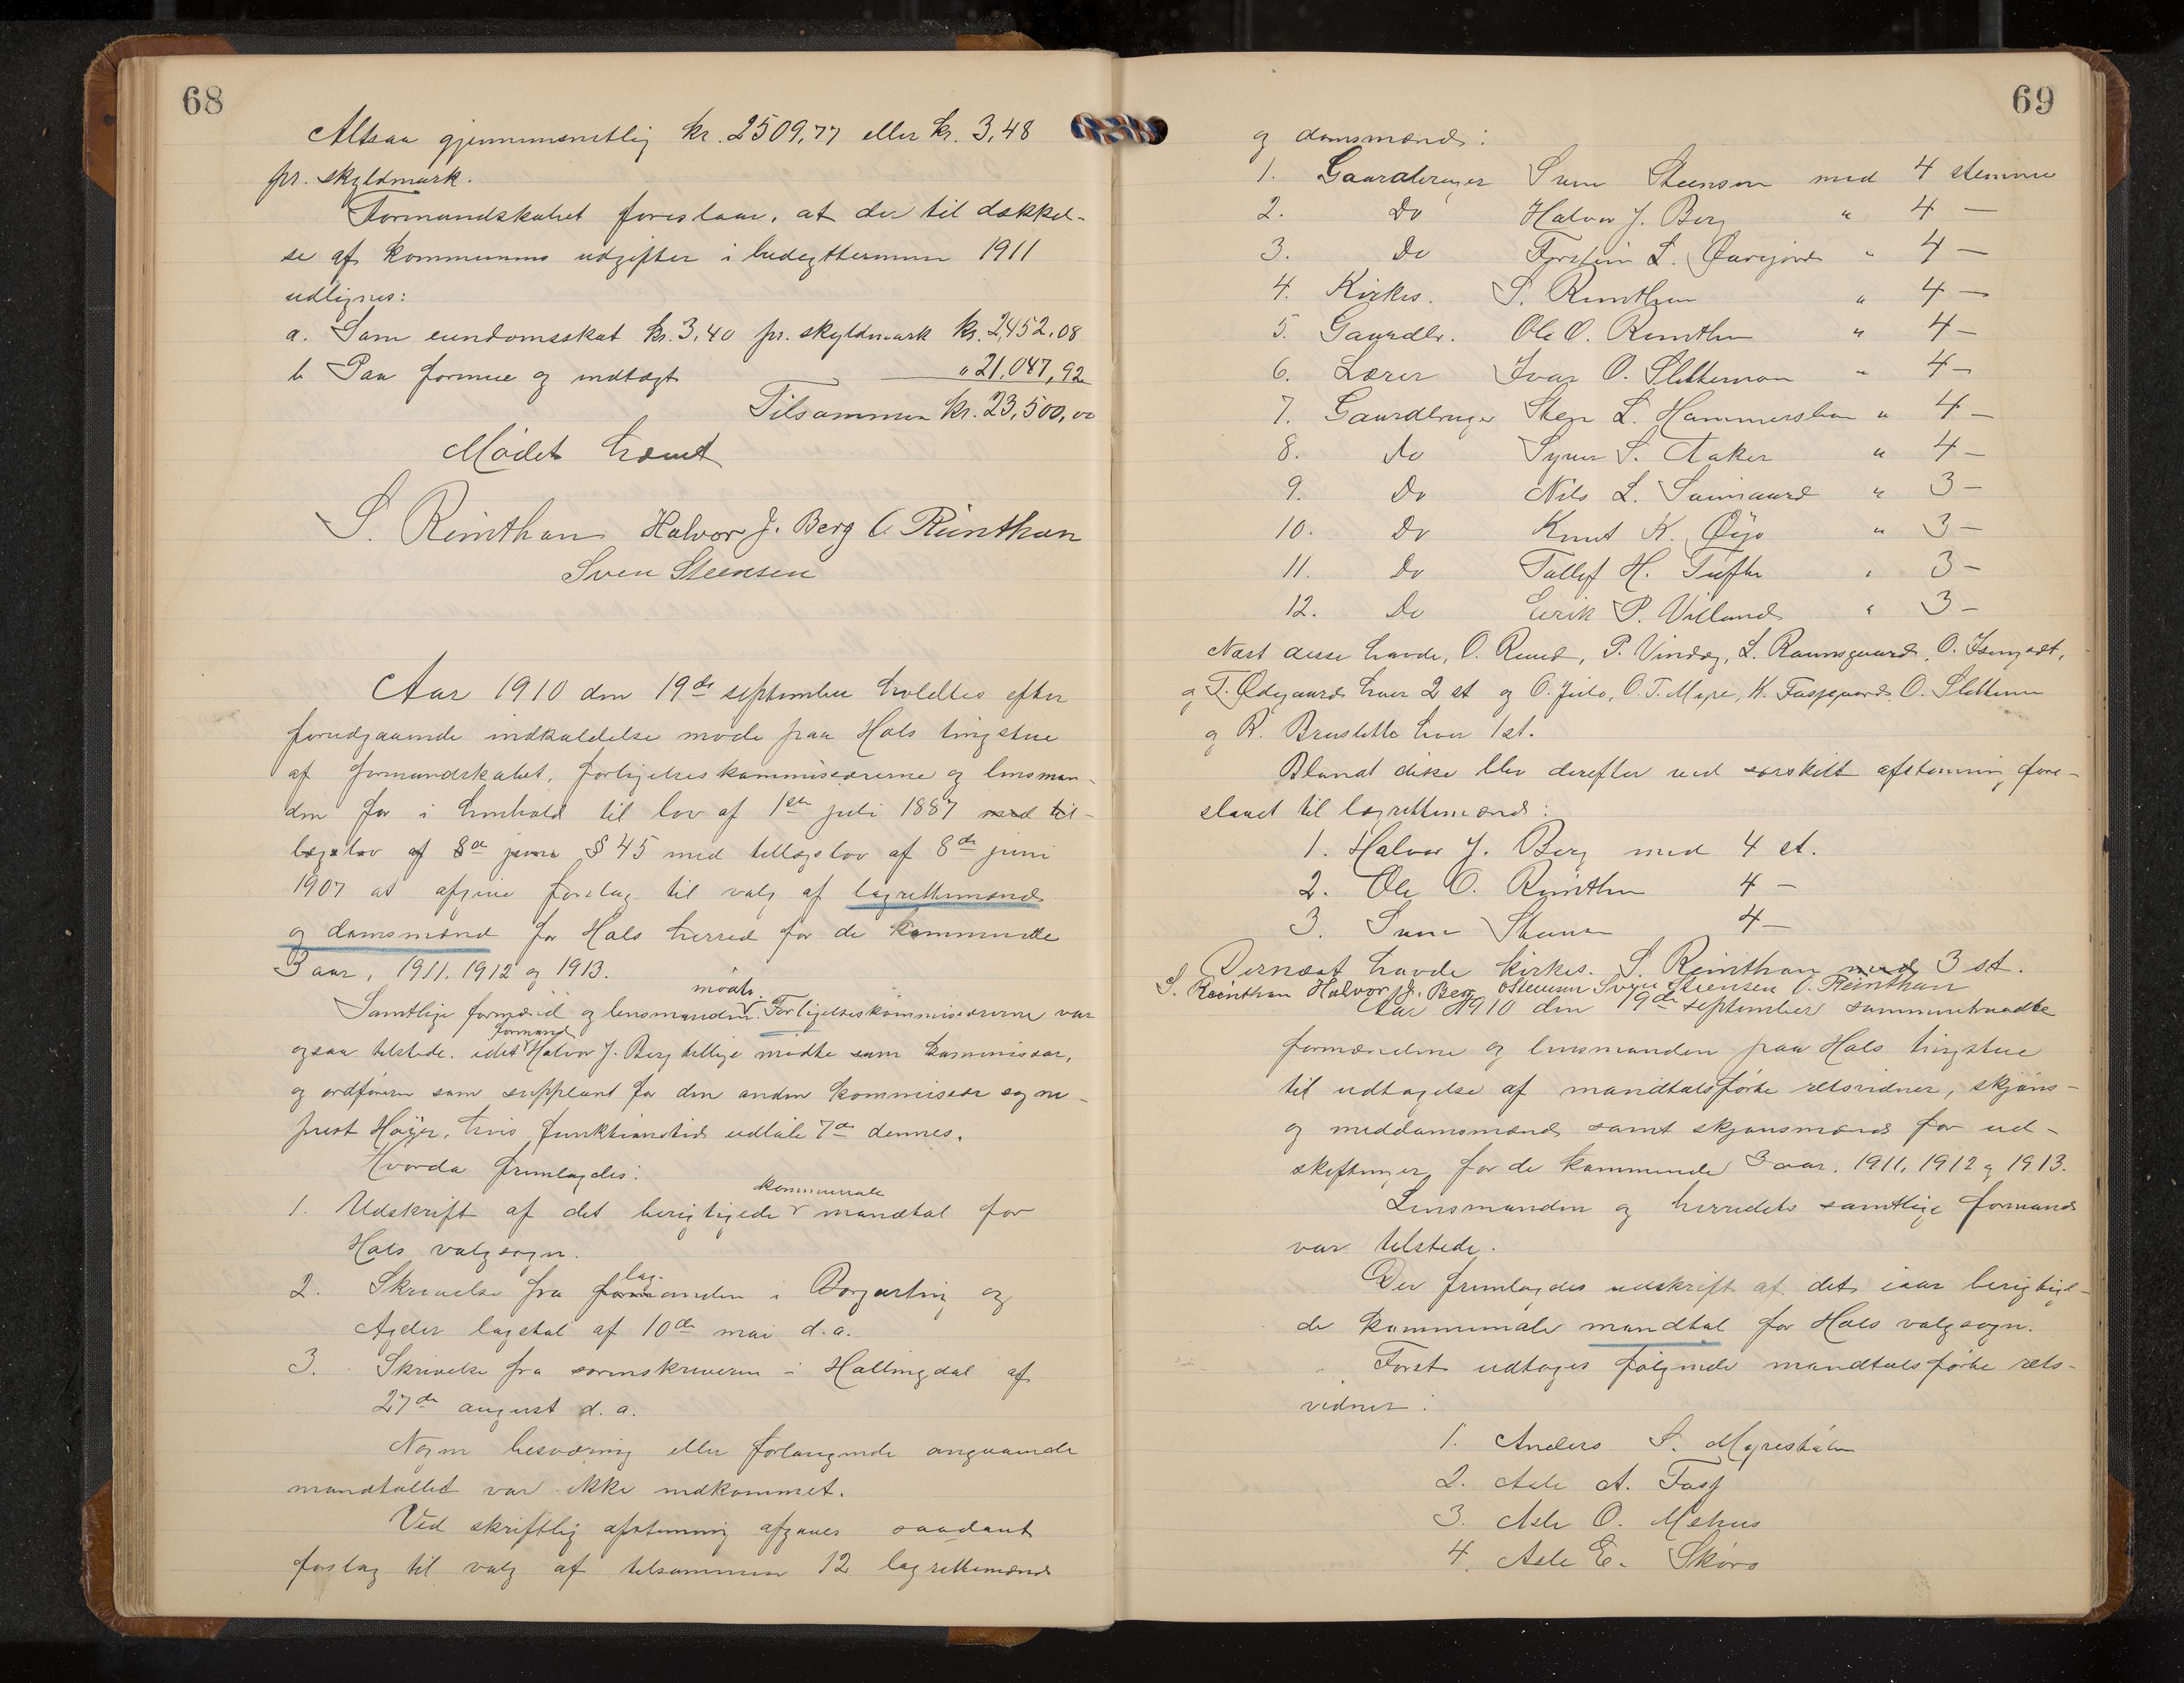 68
Altsaa gjennemsnitlig kr. 2509,77 eller kr. 3,48
pr. skyldmark.
Formandskabet foreslaar, at der til dækkel-
se af kommunens udgifter i budgetterminen 1911
udlignes:
a. Som eiendomsskat kr. 3,40 pr. skyldmark kr. 2,452,08
b Paa formue og indtægt " 21,047,92
Tilsammen kr. 23,500,00
Mødet hævet
S. Reinthon Halvor J. Berg O. Reinthon
Sven Steensen
Aar 1910 den 19de september holdtes efter
forudgaaende indkaldelse møde paa Hols tingstue
af formandskabet, forligelseskommissærerne og lensman-
den for i henhold til lov af 1ste juli 1887 med til-
lægslov af 8de juni § 45 med tillægslov af 8de juni
1907 at afgive forslag til valg af lagrettemænd
og domsmænd for Hols herred for de kommende
3 aar, 1911, 1912 og 1913.
Samtlige formænd og lensmanden mødte. Forligelseskommissærerne var
ogsaa tilstede, idet formand Halvor J. Berg tillige mødte som kommissær,
og ordføreren som suppleant for den anden kommissær sogne-
prest Høyer, hvis funktionstid udløb 7de dennes.
Hvorda fremlagdes:
1. Udskrift af det berigtigede kommunale mandtal for
Hols valgsogn.
2. Skrivelse fra lagmanden i Borgarting og
Agder lagstol af 10de mai d.a.
3. Skrivelse fra sorenskriveren i Hallingdal af
27de august d.a.
Nogen besværing eller forlangende angaaende
mandtallet var ikke indkommet.
Ved skriftlig afstemning afgaves saadant
forslag til valg af tilsammen 12 lagrettemænd
69
og domsmænd:
1. Gaardbruger Sven Steensen med 4 stemmer
2. Do Halvor J. Berg " 4 —
3. Do Torstein L. " 4 —
4. Kirkes. S. Reinthon " 4 —
5. Gaardbr. Ole O. Reinthon " 4 —
6. Lærer Ivar O. Slettemoen " 4 —
7. Gaardbruger L. Hammersbøen " 4 —
8. Do S. Aaker " 4 —
9. Do Nils L. " 3 —
10. Do Knut K. Øyo " 3 —
11. Do Tollef H. Tufte " 3 —
12. Do Eirik P. Villand " 3 —
Næst disse havde, O. Ruud, P. Vindeg, L. Raunsgaard, O.
og T. Ødegaard hver 2 st og O. Juvo, O. T. Myre, K. O. Slettemoen
og R. Bruslette hver 1 st.
Blandt disse blev derefter ved særskilt afstemning fore-
slaaet til lagrettemænd:
1. Halvor J. Berg med 4 st.
2. Ole O. Reinthon 4 —
3. Sven Steensen 4 —
Dernæst havde kirkes. S. Reinthon med 3 st.
S. Reinthon Halvor J. Berg Sven Steensen O. Reinthon
Aar 1910 den 19de september sammentraadte
formændene og lensmanden paa Hols tingstue
til udtagelse af mandtalsførte retsvidner, skjøns-
og meddomsmænd samt skjønsmænd for ud-
skiftninger for de kommende 3 aar, 1911, 1912 og 1913.
Lensmanden og herredets samtlige formænd
var tilstede.
Der fremlagdes udskrift af det iaar berigtige-
de kommunale mandtal for Hols valgsogn.
Først udtoges følgende mandtalsførte rets-
vidner:
1. Anders S. Myrestølen
2. Asle A.
3. Asle O. Mehus
4. Asle E. Skøro